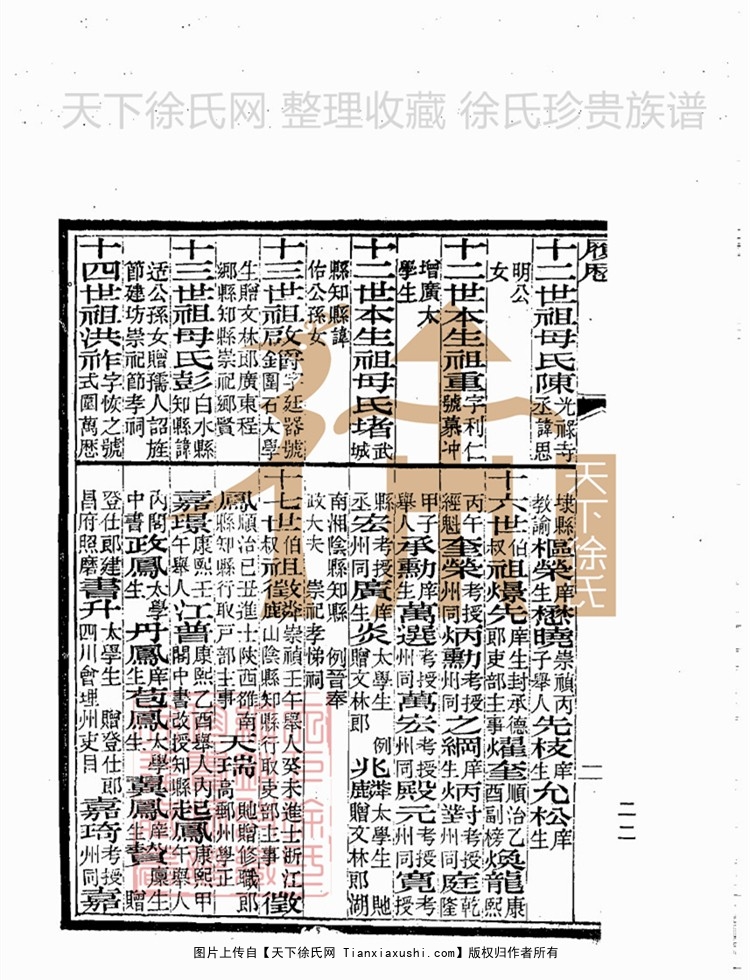 天下徐氏网 整理收藏 徐氏珍贵族谱
履歴
十二世祖母氏陳光祿寺丞諱思
明公女
十二世本生祖重字利仁號葉冲
增廣太學生
十二世本生祖母氏堵武城
縣知縣諱佑公孫女
十三世祖啟爵字廷器號金圍石太學
生贈文林郎廣東程鄉縣知縣崇祀鄉賢
十三世祖母氏彭白水縣知縣諱
适公孫女贈孺人詔旌節建坊崇祀節孝祠
十四世祖洪祚字恢之號式圍萬厯
埭縣教諭樞榮庠生懋曉崇禎丙子舉人先枝庠生允松庠生
十六世伯叔祖爆先庠生封承德郎吏部主事燿奎順治乙酉副榜煥龍康熙
丙午經魁奎榮考授州同炳勳考授州同之綱庠生炳寸考授州同庭乾隆
甲子舉人承勳庠生萬選考授州同萬宏考授州同殿元考授州同寬考授
縣丞宏考授州同廣庠生炎太學生例贈文林郎兆麟太學生貤贈文林郎湖
南湘陰縣知縣例晉奉政大夫崇祀孝悌祠
十七世伯叔祖啟麟崇禎壬午舉人癸未進士浙江山陰縣知縣行取吏部主事徵
鳳順治已丑進士陝西雒南縣知縣行取戸部主事天瑞貤贈修職郎高郵州學正
嘉璟康熙壬午舉人江普康熙乙酉舉人內閣中書改授知縣起鳳康熙甲午舉人
內閣中書政鳳太學生丹鳳庠生苞鳳太學生翼鳳庠生贊廩生贈
登仕郎建昌府照磨書升太學生贈登仕郎四川會理州吏目嘉琦考授州同嘉
二二
天下徐氏
图片上传自【天下徐氏网 Tianxiaxushi.com】版权归作者所有